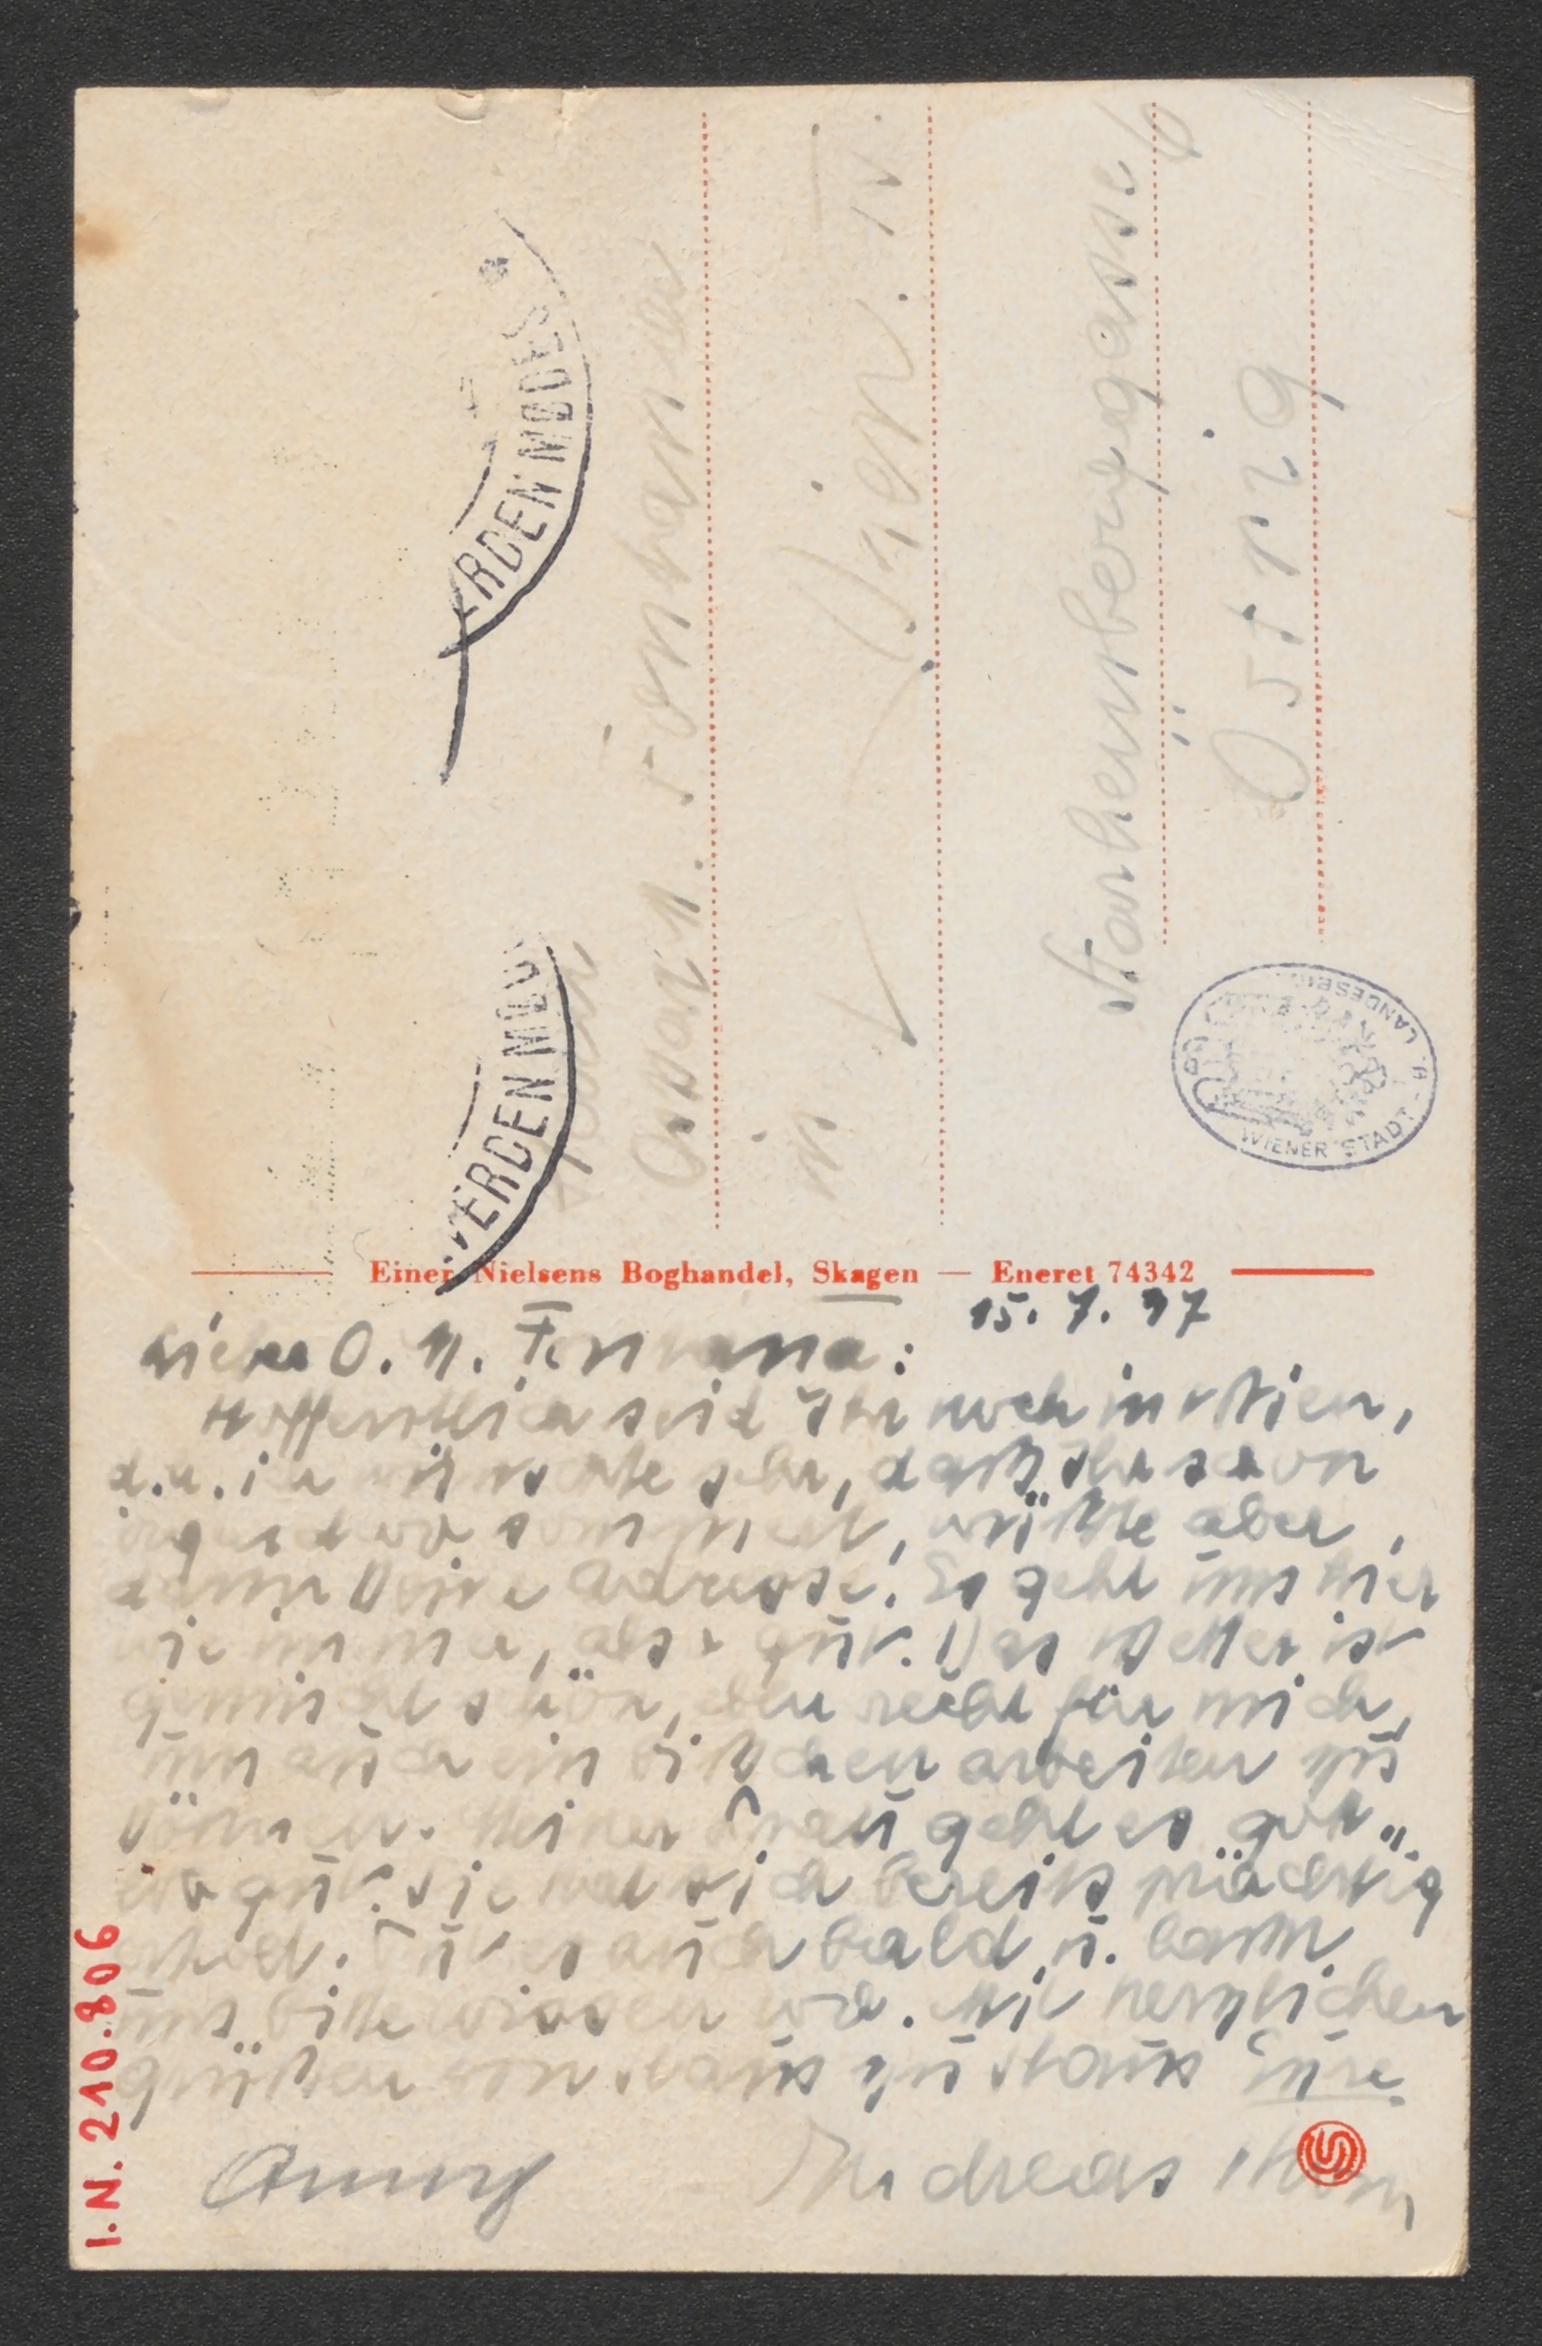 VERDEN MØDES
VERDEN MØD
Herrn
Oskar M. Fontana
in
Wien. IV.
Starhembergasse 6
Östrig
WIENER STADT- U. LANDESBI
Einer Nielsens Boghandel, Skagen — Eneret 74342
15. 7. 37
Lieber O. M. Fontana:
Hoffentlich seid Ihr noch in Wien,
d. h. ich wünschte sehr, daß Ihr schon
irgendwo sommert, wüßte aber
dann Deine Adresse. Es geht uns hier
wie immer, also gut. Das Wetter ist
gemischt schön, eben recht für mich,
um auch ein bißchen arbeiten zu
können. Meiner Frau geht es gott-
lob gut. sie hat sich bereits prächtig
erholt. Tut es auch bald u. laßt
uns bitte wissen wo. Mit herzlichen
Grüßen von Haus zu Haus Eure
Anny Andreas Thom
I.N. 210.806